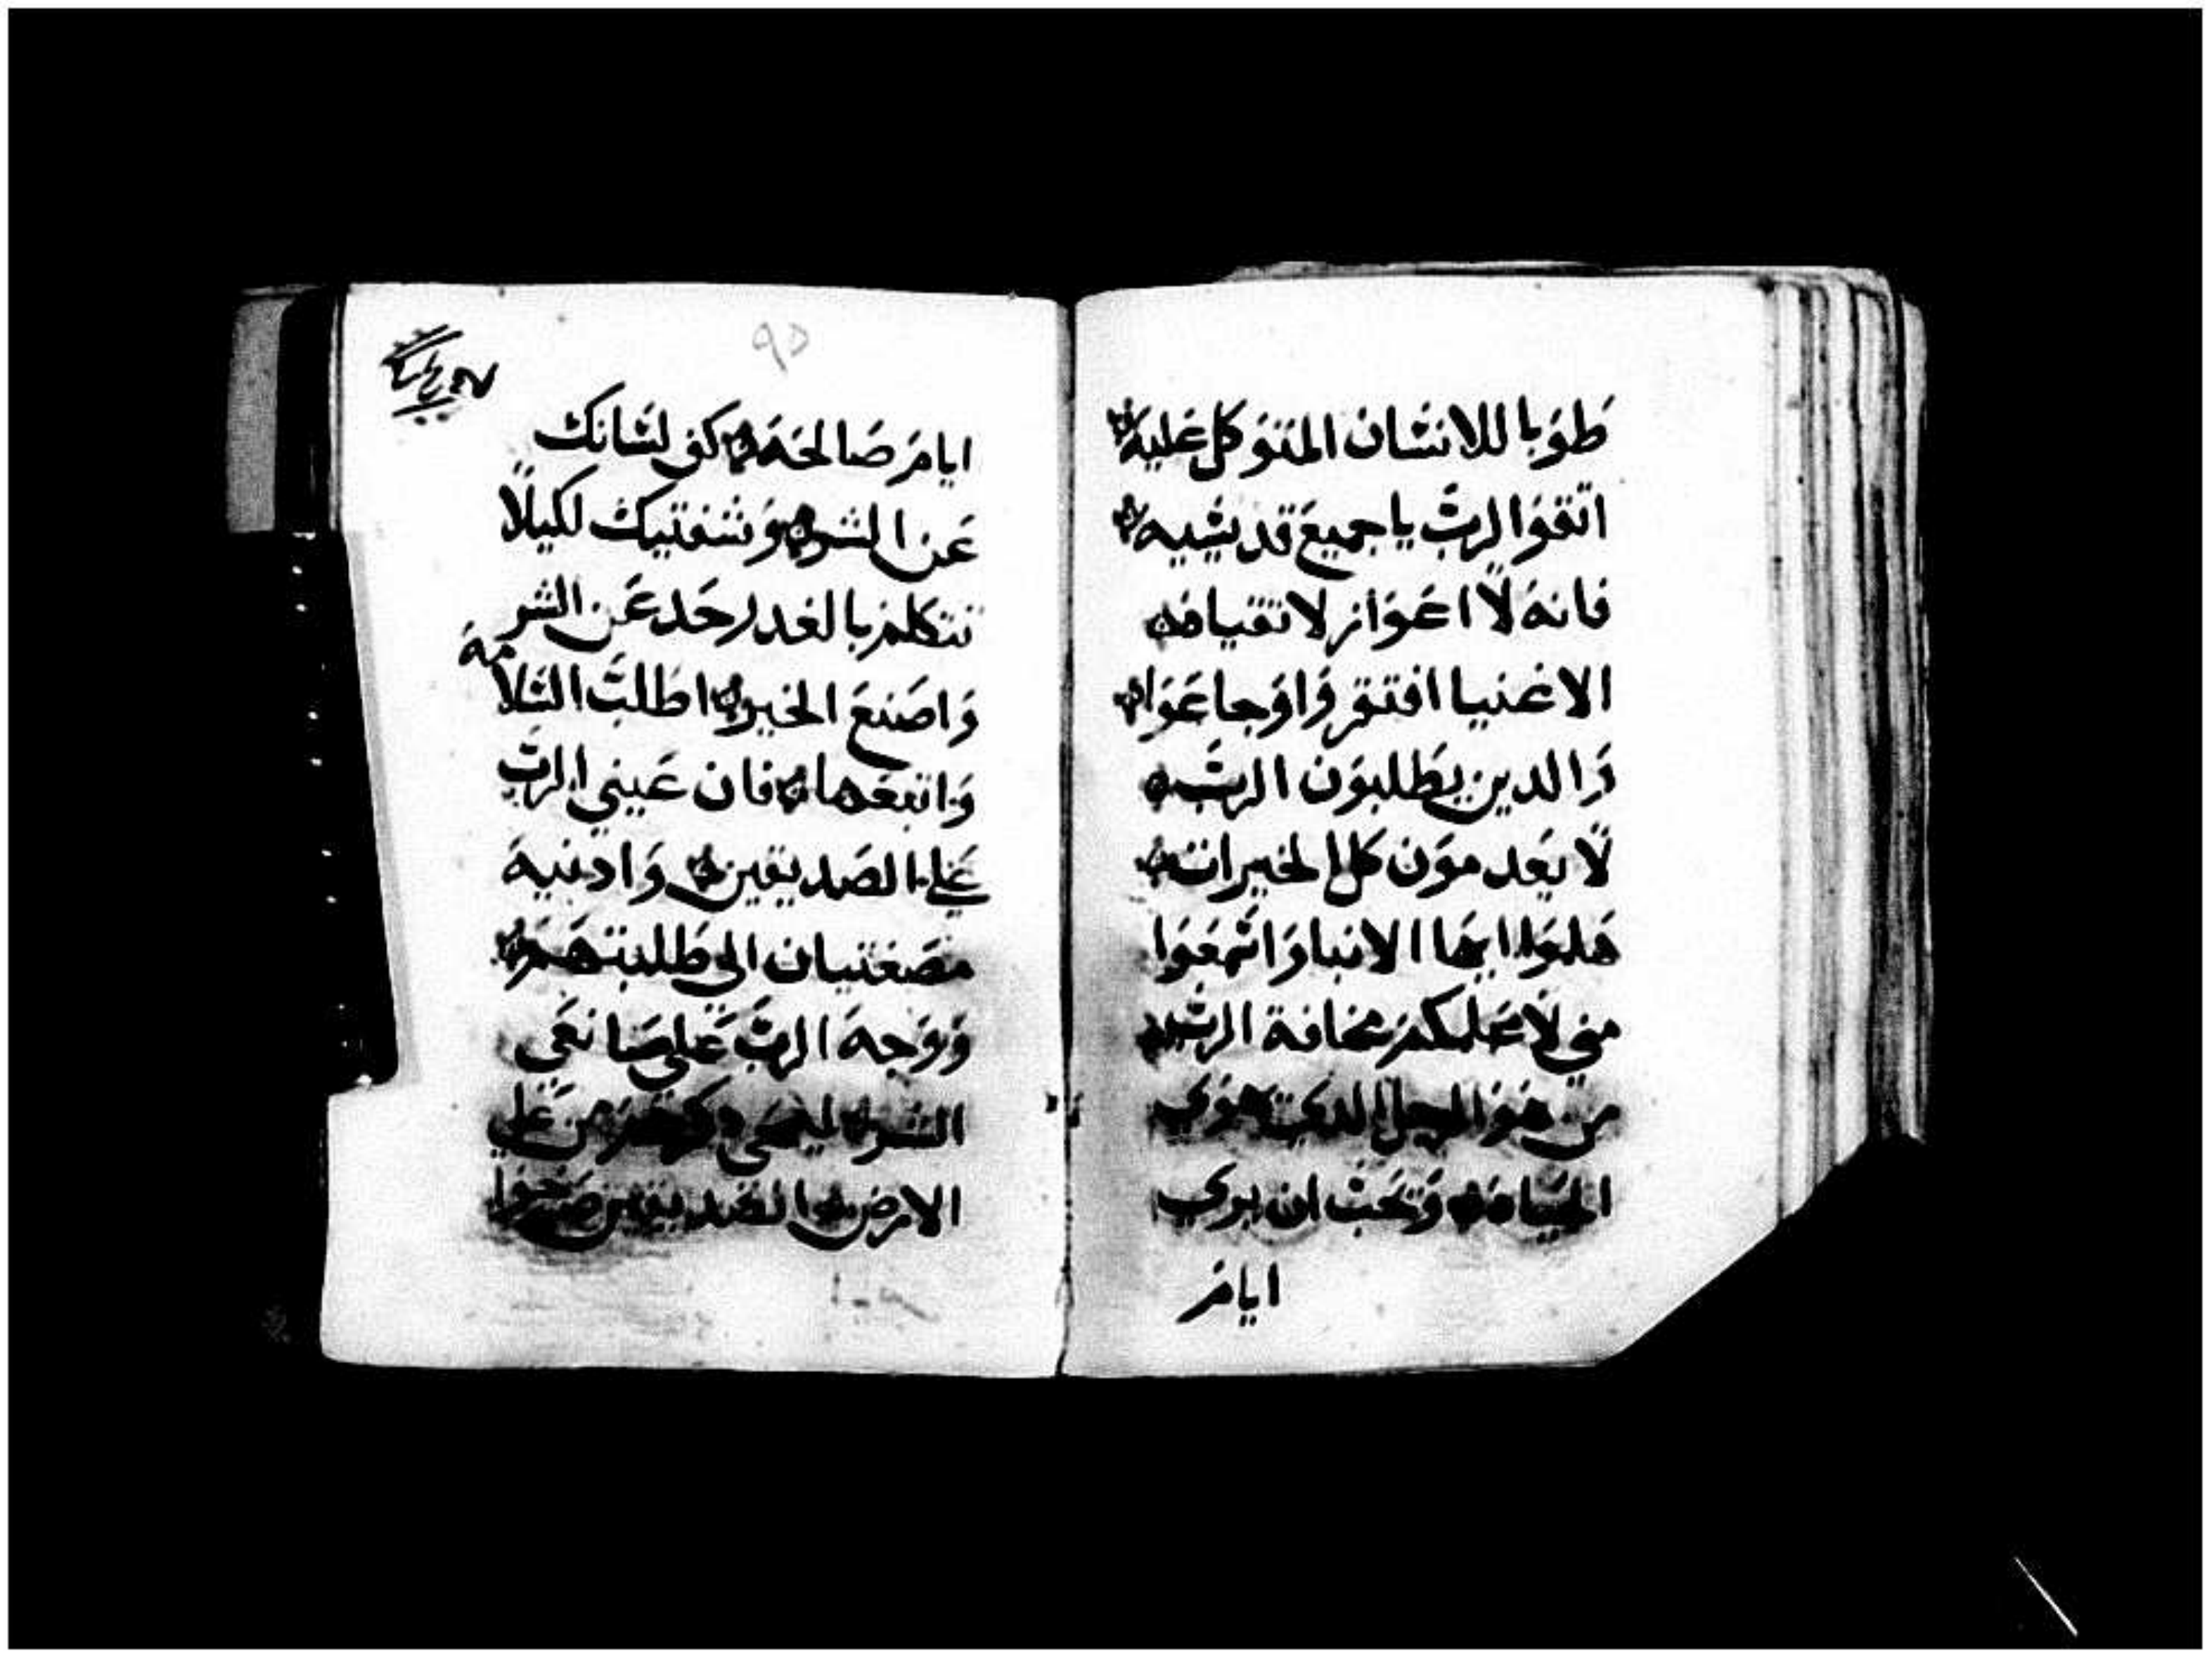 طوبا للانسان المتوكل عليه
اتقوا الرب يا جميع قديسيه
فانه لا اعواز لاتقياه
الاغنيا افتقروا وجاعوا
والدين يطلبون الرب
لا يعدمون كل الخيرات
هلموا ايها الابنا واسمعوا
مني لاعلمكم مخافة الرب
من هو الرجل الدي هوي
الحياه وتحب ان يري
ايام
٩٥
ايام صالحه كف لسانك
عن الشر وشفتيك لكيلا
تتكلم بالغدر حد عن الشر
واصنع الخير اطلب السلامه
واتبعها فان عيني الرب
علي الصديقين وادنيه
مصغتيان الي طلبتهم
ووجه الرب علي صانعي
الشر ليمحي دكرهم من علي
الارض الصديقين صرخوا